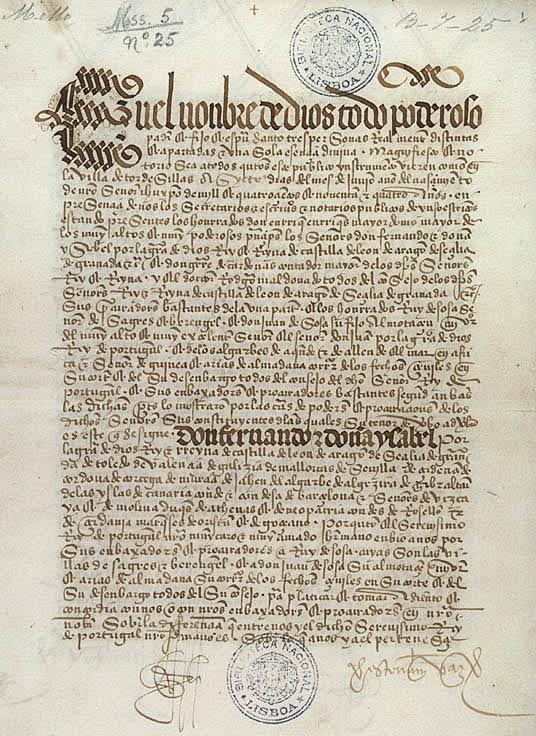 Mello
Mss. 5
nº 25
B-7-25
BIBLIOTECA NACIONAL
LISBOA
En el nonbre de dios todo poderoso
padre & fijo & espu santo tres personas realmente distintas
& apartadas & una sola esencia divina. Magnifiesto & no
torio sea a todos quantos este publico ynstrumento vieren como en
la villa de tordesillas a siete dias del mes de junio año del nasçimiento
de nro señor ihu xpo de mill & quatroçientos & noventa & quatro años. en
presençia de nos los secretarios & escrivanos & notarios publicos de yuso escriptos
estando presentes los honrrados don enrrique enrriques mayordomo mayor de
los muy altos & muy poderosos prinçipes los señores don fernando & doña
ysabel por la graçia de dios Rey & Reyna de castilla de leon de aragon de seçilia
de granada & & don gutierre de cardenas contador mayor de los dichos señores
Rey & Reyna. y el doctor Rodrigo maldonado todos del consejo de los dichos
señores Rey & Reyna de castilla de leon de aragon de seçilia de granada &
sus procuradores bastantes de la una parte. & los honrrados Ruy de sosa se
ñor de sagres & berengel. & don juan de sosa su fijo almotaçen mayor
del muy alto & muy exçelente señor el señor don juan por la graçia de dios
Rey de portugal. & de los algarbes de aquende & de allende el mar en afri
ca & señor de guinea & arias de almadana corregidor de los fechos çeviles en
su corte & del su desenbargo todos del consejo del dicho señor Rey de
portugal. & sus enbaxadores & procuradores bastantes segund anbas
las dichas partes lo mostraron por las cartas de poderes & procuraçiones de los
dichos señores sus constituyentes de las quales su tenor de verbo ad verbum
es este que se sigue Don fernando & doña ysabel por
la graçia de dios Rey & Reyna de castilla de leon de aragon de seçilia de grana
da de toledo de valençia de galizia de mallorcas de sevilla de çerdeña de
cordova de corçega de murçia de jahen del algarbe de algezira de gibraltar
de las yslas de canaria conde & condesa de barçelona & señores de vizca
ya & de molina duques de athenas & de neopatria condes de Rosellon
& de çerdania marqueses de oristan & de goçiano. Por quanto el serenisimo
Rey de portugal nro muy caro & muy amado hermano enbio a nos por
sus enbaxadores & procuradores a Ruy de sosa cuyas son las vi
llas de sagres & berengel. & a don juan de sosa su almotaçen mayor
& arias de almadana su corregidor de los fechos çeviles en su corte & del
su desenbargo todos del su consejo. para platicar & tomar asiento &
concordia con nos o con nros enbaxadores & procuradores en nro
nonbre. sobre la diferençia que entre nos y el dicho serenisimo Rey
de portugal nro hermano es sobre lo que a nos y a el pertenesçe
BIBLIOTECA NACIONAL
LISBOA